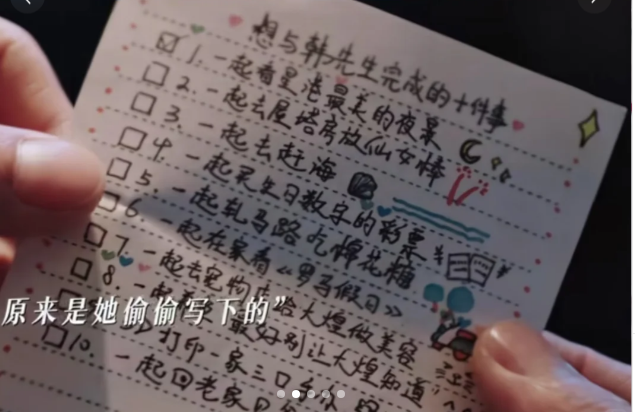 想与韩先生完成的十件事
☑ 1. 一起看星港最美的夜景
□ 2. 一起去屋塔房放仙女棒
□ 3. 一起去赶海
□ 4. 一起买生日数字的彩票
□ 5. 一起轧马路吃棉花糖
□ 6. 一起在家看《罗马假日》
□ 7. 一起去宠物店给大煌做美容
□ 8. 最好别让大煌知道
原来是她偷偷写下的”
打印一家三口
□ 10. 一起回老家